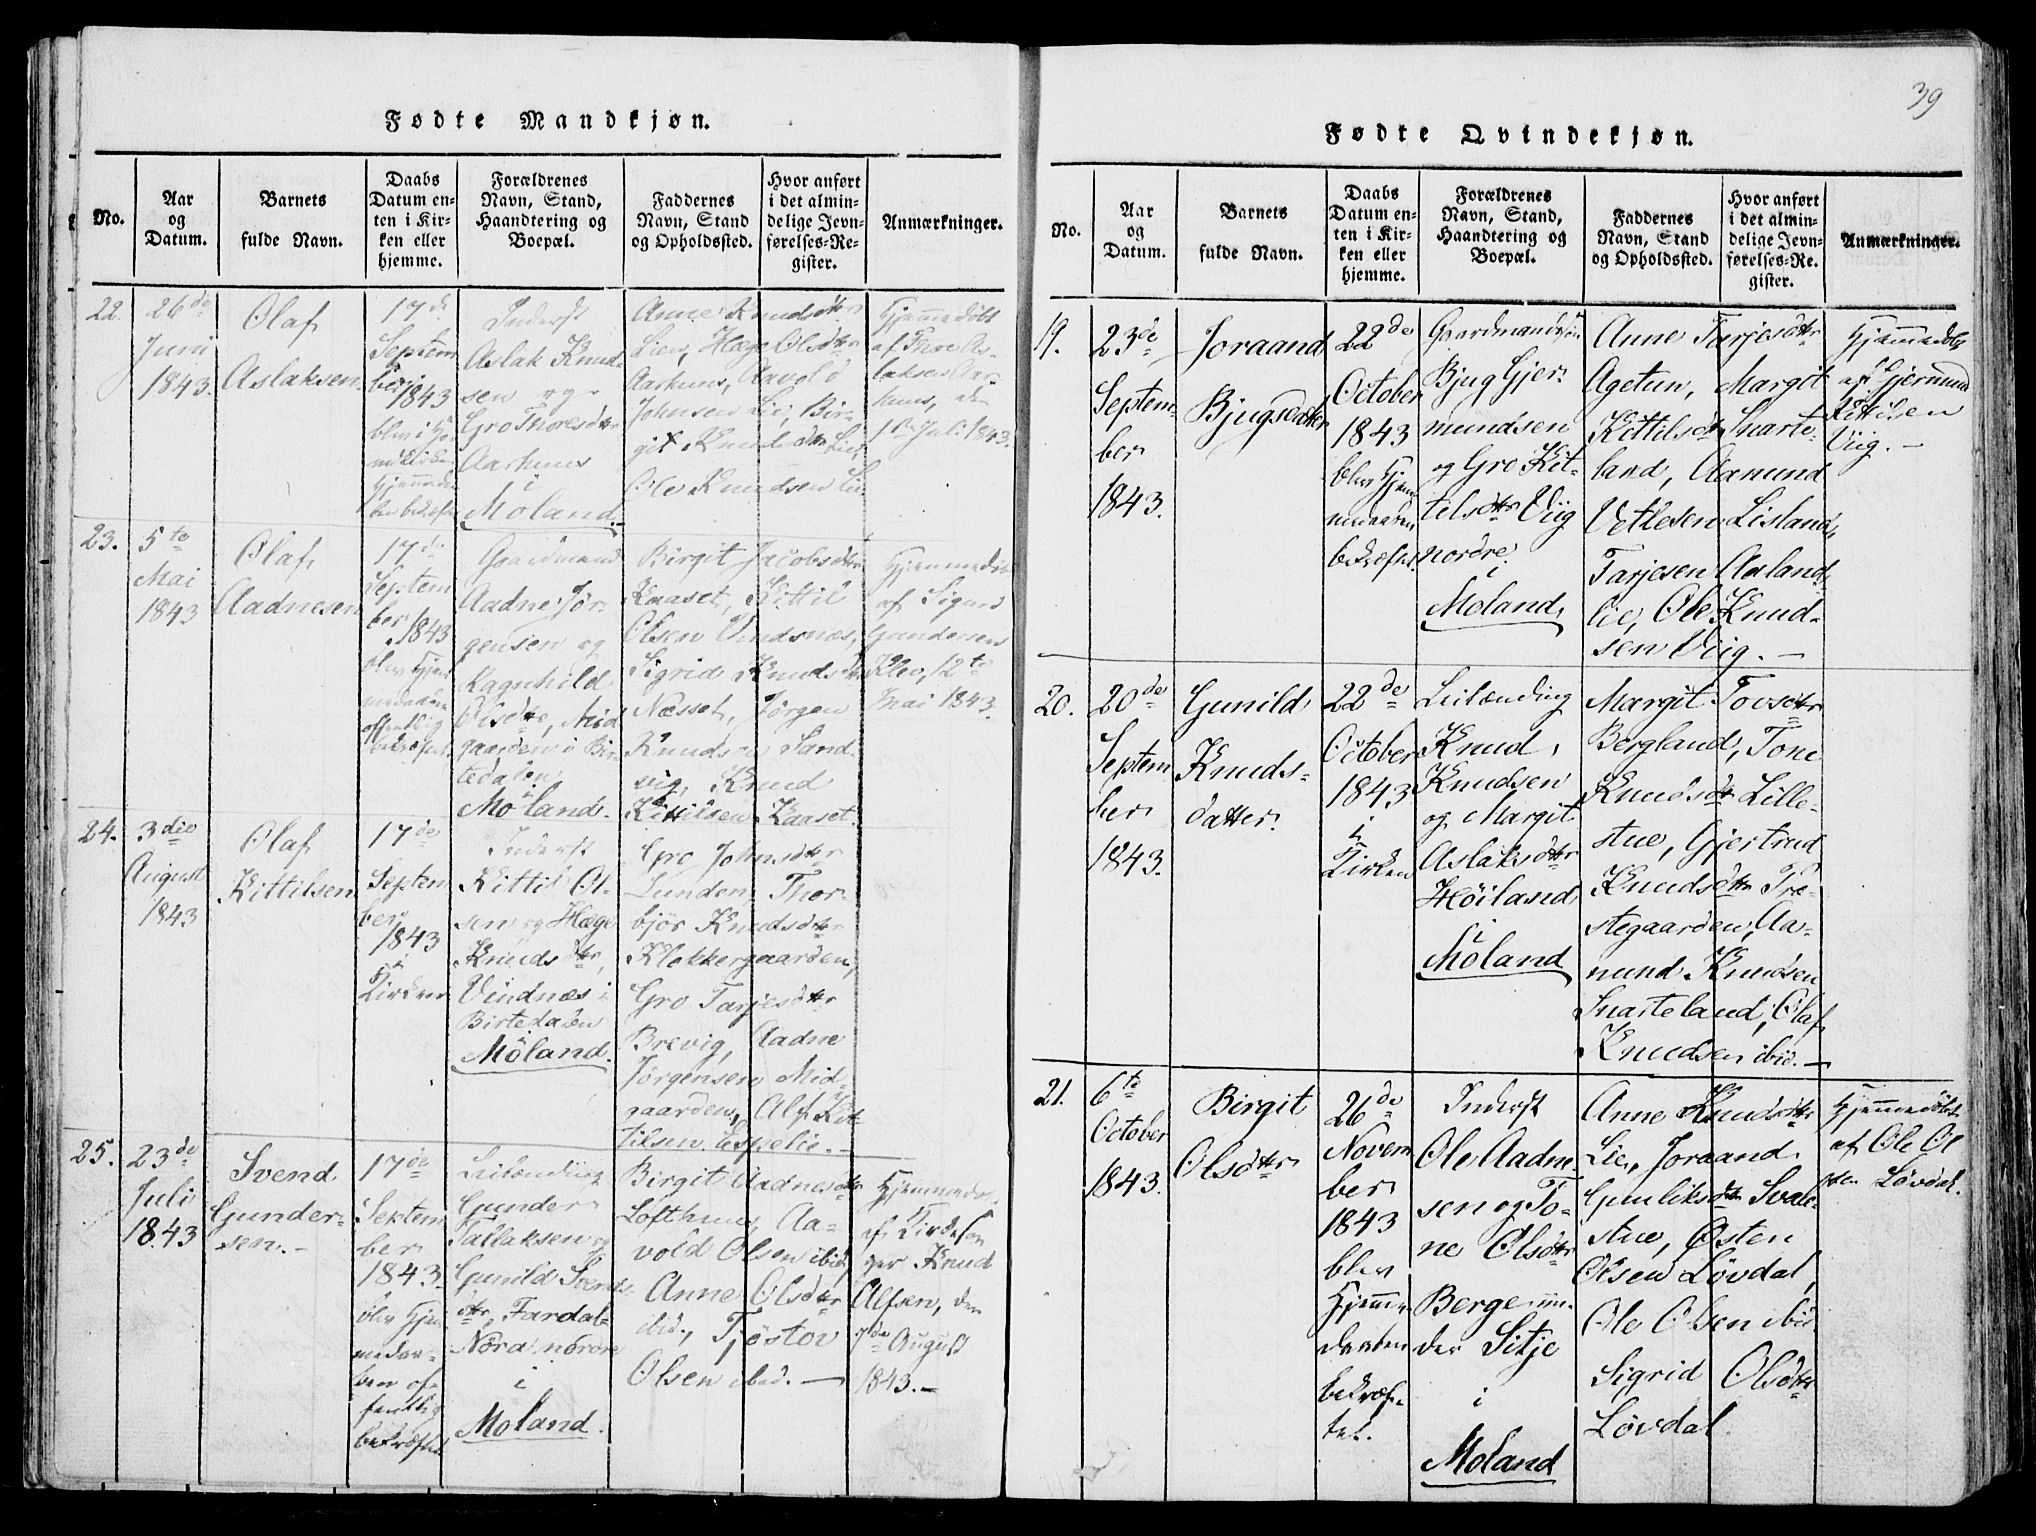 Fødte Mandkjøn.
No.
Aar
og
Datum.
Barnets
fulde Navn.
Daabs
Datum en-
ten i Kir-
ken eller
hjemme.
Forældrenes
Navn, Stand,
Haandtering og
Boepæl.
Faddernes
Navn, Stand
og Opholdssted.
Hvor anført
i det almin-
delige Jevn-
førelses-Re-
gister.
Anmærkninger.
22.
26de
Juni
1843.
Olaf
Aslaksen
17de
Septem
ber
1843
blev i
Inderst
Aslak Knud
sen og
Gro Thoresdtr
Aarhuus
i
Moland.
Anne Knudsdtr
Lien, Hæge Olsdtr
Aarhuus, Aavold
Johnsen Lie, Bir-
git Knudsdtr Lie,
Ole Knudsen Lie
Hjemmedøbt
af Thore As-
laksen Aar-
huus, den
1ste Juli 1843.
23.
5te
Mai
1843
Olaf
Aadnesen
17de
Septem
ber
1843
blev Hjem
medaaben
offentlig
bekræftet.
Gaardmand
Aadne Jör-
gensen og
Ragnhild
Olsdtr, Mid
gaarden i Bir
tedalen
Moland.
Birgit Jacobsdtr
Kaaset, Kittil
Olsen Vindsnæs,
Sigrid Knudsdtr
Næsset, Jörgen
Knudsen Sand-
vig, Knud
Kittilsen Kaaset.
Hjemmedöbt
af Sigurd
Gundersen
Kleo, 12te
Mai 1843.
24.
3die
August
1843
Olaf
Kittilsen
17de
Septem
ber
1843
i
Kirken
Inderst
Kittil Ol-
sen og Hæge
Knudsdtr,
Vindnæs i
Birtedalen
Moland.
Gro Johnsdtr
Lunden, Thor-
björ Knudsdtr
Klokkergaarden,
Gro Tarjesdtr
Brevig, Aadne
Jörgensen Mid-
gaarden, Alf Kit
tilsen Espelie.
25.
23de
Juli
1843
Svend
Gunder-
sen.
17de
Septem
ber
1843.
blev Hjem
medaa-
ben of-
fentlig
bekræftet.
Leilænding
Gunder
Tallaksen og
Gunild Svends
dtr, Fardal
Nora nordre
i
Moland.
Birgit Aadnesdtr
Lofthuus, Aa-
vold Olsen ibid,
Anne Olsdtr
ibid., Tjöstov
Olsen ibid.
Hjemmedöbt
af Kirkesan
ger Knud
Alfsen, den
7de August
1843.
39
Fødte Qvindekjøn.
No.
Aar
og
Datum.
Barnets
fulde Navn.
Daabs
Datum en-
ten i Kir-
ken eller
hjemme.
Forældrenes
Navn, Stand,
Haandtering og
Boepæl.
Faddernes
Navn, Stand
og Opholdssted.
Hvor anført
i det almin-
delige Jevn-
førelses-Re-
gister.
Anmærkninger.
19.
23de
Septem-
ber
1843.
Joraand
Bjugsdatter
22de
October
1843
blev Hjem
medaaben
bekræftet.
Gaardmandssön
Bjug Gjer-
mundsen
og Gro Kit-
telsdtr Viig
nordre,
i
Moland
Anne Tarjesdtr
Agetun, Margit
Kittilsdtr Snarte-
land, Aanund
Vetlesen Lisland,
Tarjesen Aaland
lie, Ole Knud-
sen Viig.
Hjemmedöbt
af Gjermund
Kittilsen
Viig.
20.
20de
Septem
ber
1843.
Gunild
Knuds-
datter.
22de
October
1843
i
Kirken
Leilænding
Knud
Knudsen
og Margit
Aslaksdtr
Höiland
i
Moland
Margit Tovsdtr
Bergland, Tone
Knudsdtr Lille-
stue, Gjertrud
Knudsdtr Præ-
stegaarden, Aa-
nund Knudsen
Snarteland, Olaf
Knudsen ibid.
21.
6te
October
1843.
Birgit
Olsdtr
26de
Novem
ber
1843
blev
Hjemme
daaben
bekræf-
tet.
Inderst
Ole Aadne
sen og To-
ne Olsdtr
Berge un-
der Sitje
i
Moland
Anne Knudsdtr
Lie, Joraand
Gunliksdtr Svale-
stue, Østen
Olsen Lövdal,
Ole Olsen ibid
Sigrid Olsdtr
Lövdal.
Hjemmedöbt
af Ole Ol
sen Lövdal.